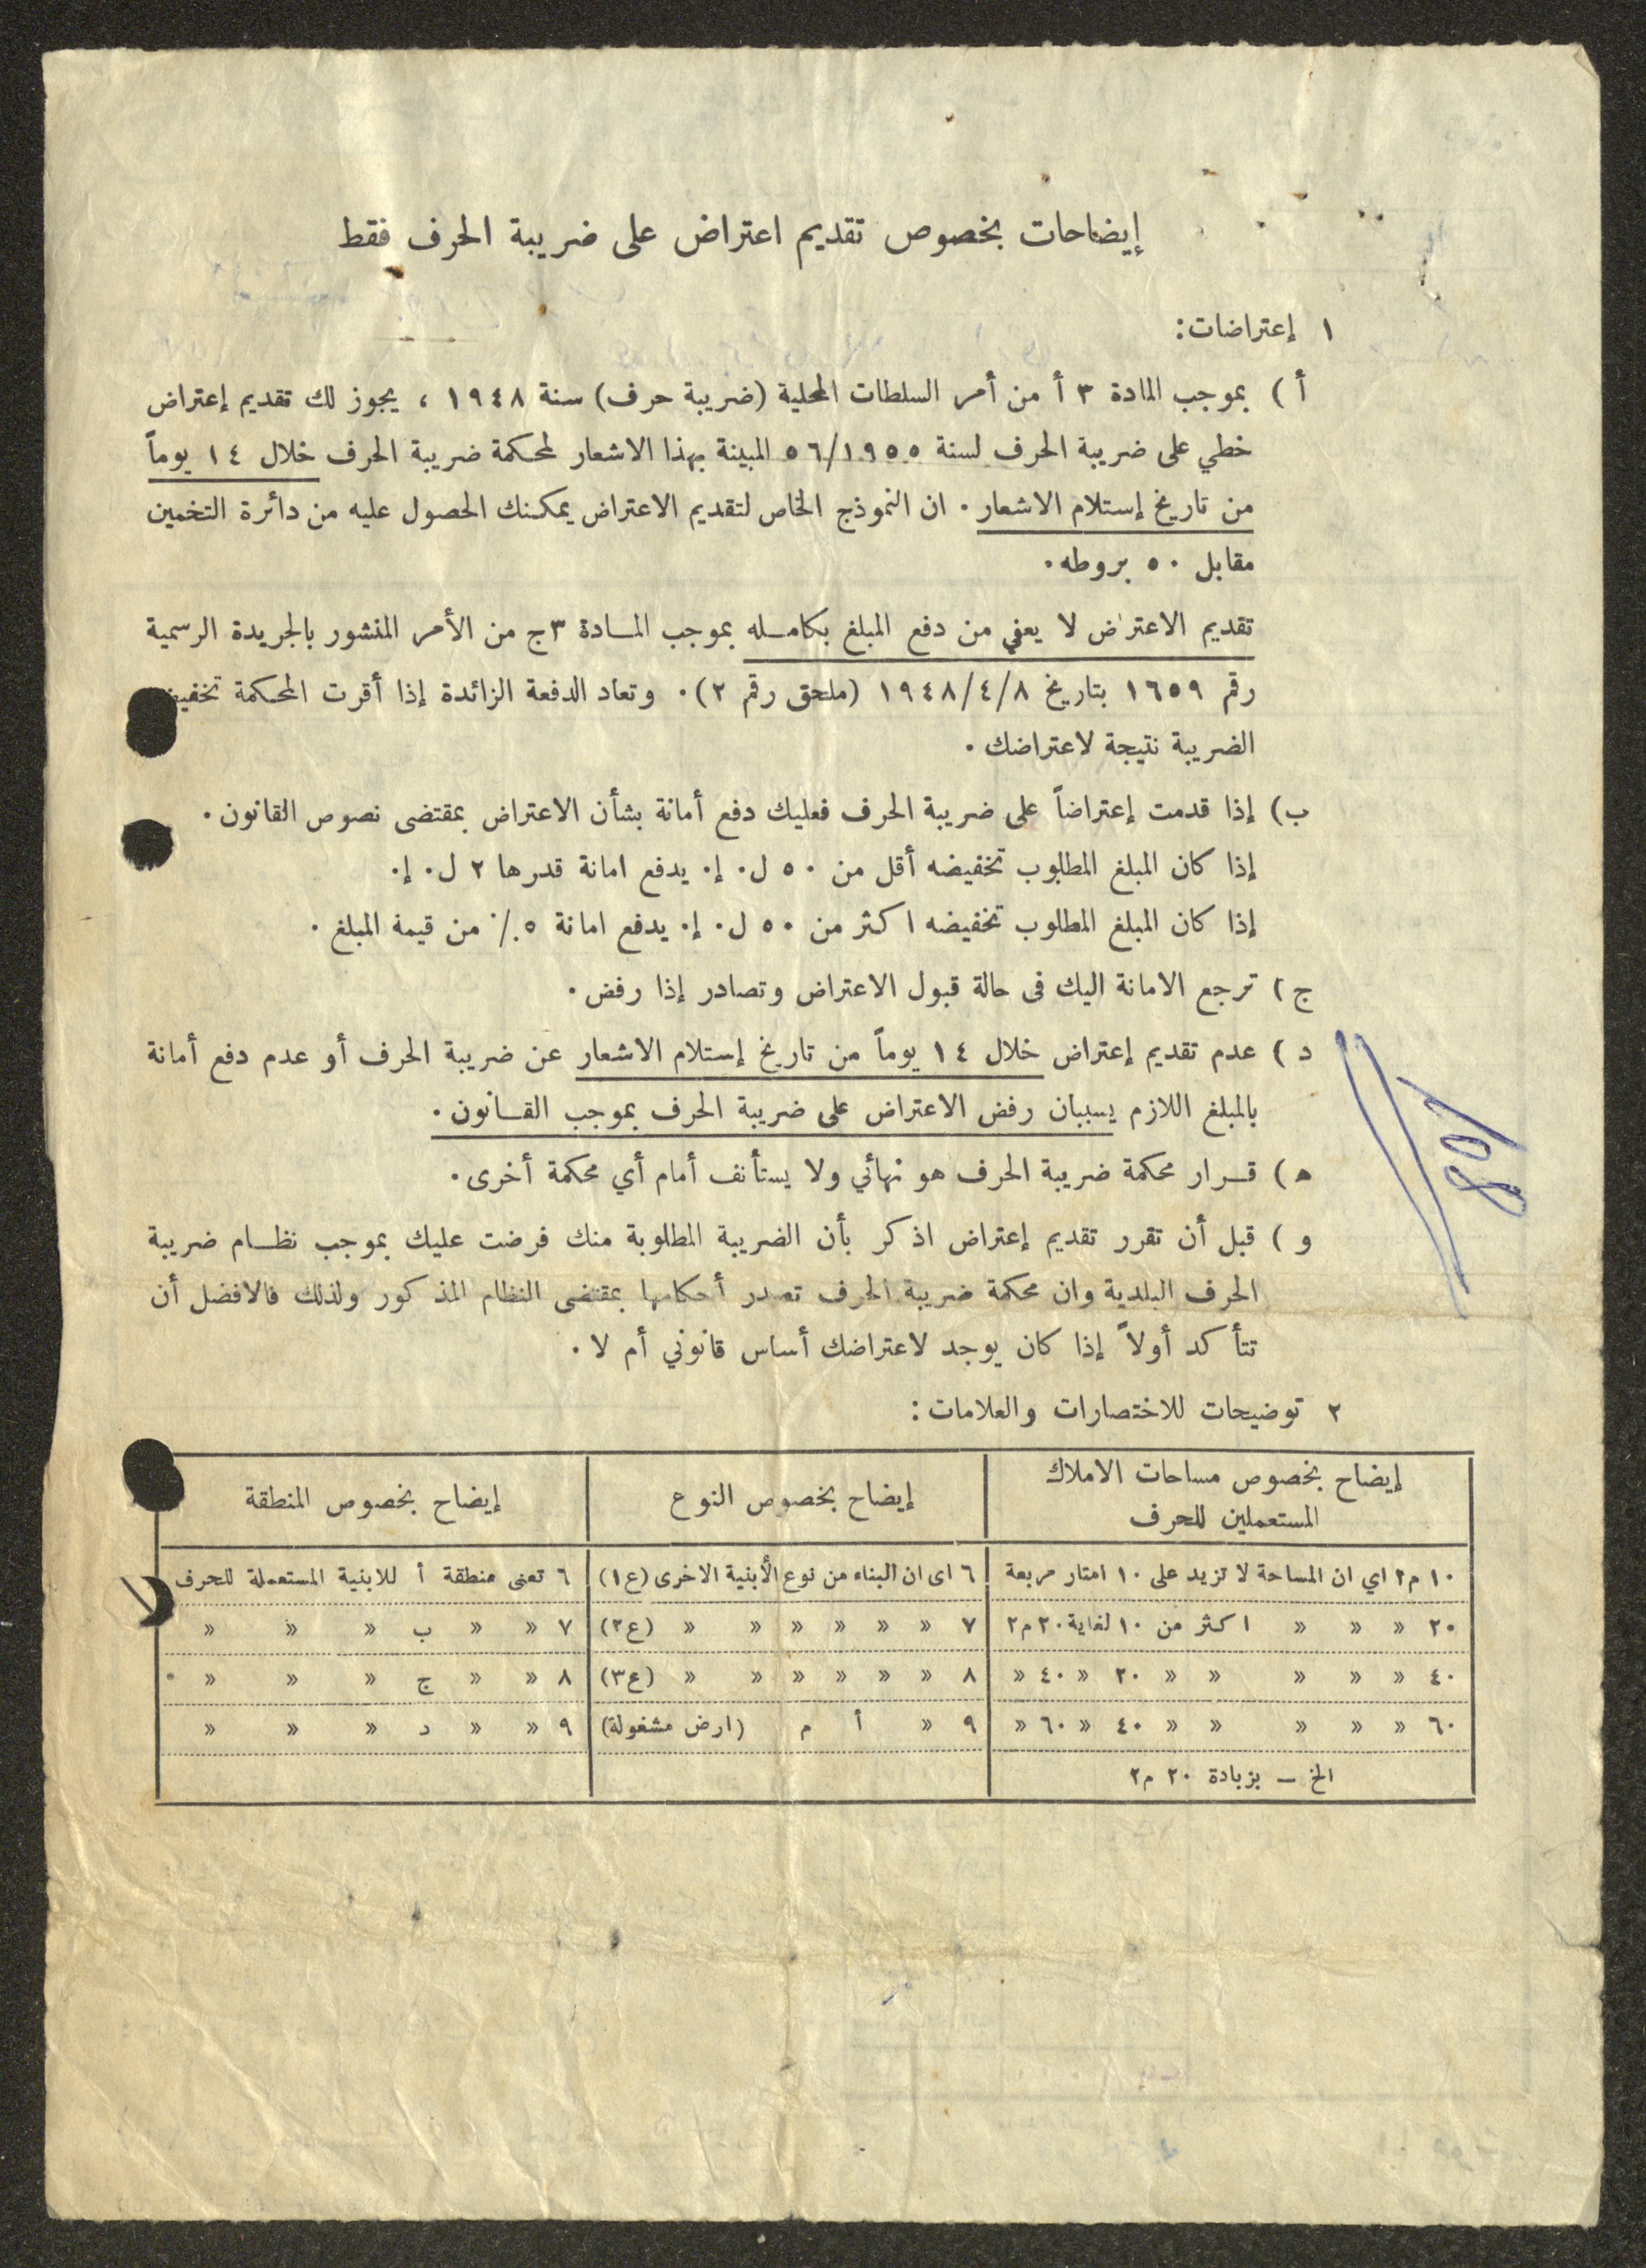 إيضاحات بخصوص تقديم اعتراض على ضريبة الحرف فقط
١ إعتراضات:
أ ) بموجب المادة ٣ أ من أمر السلطات المحلية (ضريبة حرف) سنة ١٩٤٨ ، يجوز لك تقديم إعتراض
خطي على ضريبة الحرف لسنة ٥٦/١٩٥٥ المبينة بهذا الاشعار لمحكمة ضريبة الحرف خلال ١٤ يوماً
من تاريخ إستلام الاشعار . ان النموذج الخاص لتقديم الاعتراض يمكنك الحصول عليه من دائرة التخمين
مقابل ٥٠ بروطه.
تقديم الاعتراض لا يعفي من دفع المبلغ بكامله بموجب المادة ٣ج من الأمر المنشور بالجريدة الرسمية
رقم ١٦٥٩ بتاريخ ١٩٤٨/٤/٨ (ملحق رقم ٢). وتعاد الدفعة الزائدة إذا أقرت المحكمة
الضريبة نتيجة لاعتراضك .
ب) إذا قدمت إعتراضاً على ضريبة الحرف فعليك دفع أمانة بشأن الاعتراض بمقتضى نصوص القانون .
إذا كان المبلغ المطلوب تخفيضه أقل من ٥٠ ل. إ. يدفع امانة قدرها ٢ ل. إ.
إذا كان المبلغ المطلوب تخفيضه اكثر من ٥٠ ل. إ. يدفع امانة ٥٪ من قيمة المبلغ .
ج ) ترجع الامانة اليك في حالة قبول الاعتراض وتصادر إذا رفض .
د ) عدم تقديم إعتراض خلال ١٤ يوماً من تاريخ إستلام الاشعار عن ضريبة الحرف أو عدم دفع أمانة
بالمبلغ اللازم يسببان رفض الاعتراض على ضريبة الحرف بموجب القانون .
ه ) قرار محكمة ضريبة الحرف هو نهائي ولا يستأنف أمام أي محكمة أخرى .
و ) قبل أن تقرر تقديم إعتراض اذكر بأن الضريبة المطلوبة منك فرضت عليك بموجب نظام ضريبة
الحرف البلدية وان محكمة ضريبة الحرف تصدر أحكامها بمقتضى النظام المذكور ولذلك فالافضل أن
تتأكد أولاً إذا كان يوجد لاعتراضك أساس قانوني أم لا .
٢ توضيحات للاختصارات والعلامات :
إيضاح بخصوص مساحات الاملاك
المستعملين للحرف
إيضاح بخصوص النوع
إيضاح بخصوص المنطقة
١٠ م٢ اي ان المساحة لا تزيد على ١٠ امتار مربعة
٦ اى ان البناء من نوع الأبنية الاخرى (ع١)
٦ تعنى منطقة أ للابنية المستعملة للحرف
٢٠ » » » » اكثر من ١٠ لغاية ٢٠ م٢
٧ » » » » » » (ع٢)
٧ » » ب » » »
٤٠ » » » » » » ٢٠ » ٤٠ »
٨ » » » » » » (ع٣)
٨ » » ج » » »
٦٠ » » » » » » ٤٠ » ٦٠ »
٩ » أ م (ارض مشغولة)
٩ » » د » » »
الخ – بزيادة ٢٠ م٢